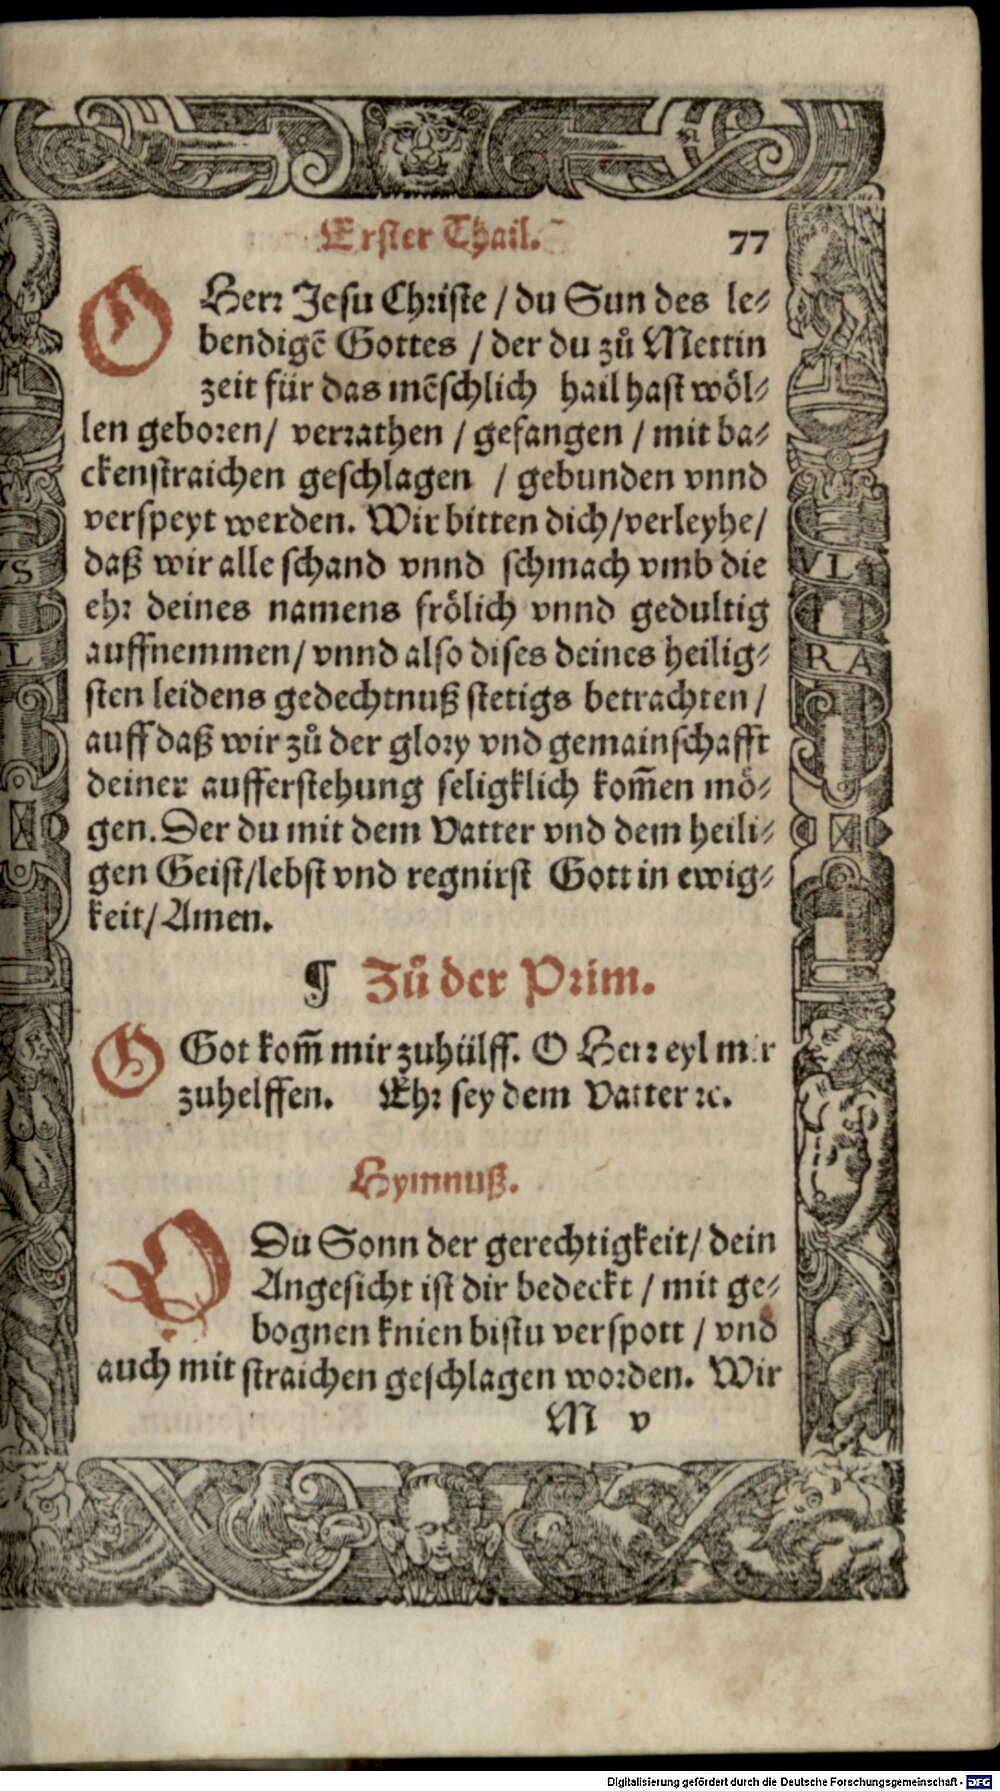 Erster Thail. 77
O Herr Jesu Christe / du Sun des le⸗
bendigẽ Gottes / der du zů Mettin
zeit für das mẽschlich hail hast wöl⸗
len geboren / verrathen / gefangen / mit ba⸗
ckenstraichen geschlagen / gebunden vnnd
verspeyt werden. Wir bitten dich / verleyhe /
daß wir alle schand vnnd schmach vmb die
ehr deines namens frölich vnnd gedultig
auffnemmen / vnnd also dises deines heilig⸗
sten leidens gedechtnuß stetigs betrachten /
auff daß wir zů der glory vnd gemainschafft
deiner aufferstehung seligklich kom̃en mö⸗
gen. Der du mit dem Vatter vnd dem heili⸗
gen Geist / lebst vnd regnirst Gott in ewig⸗
keit / Amen.
¶ Zů der Prim.
O Got kom̃ mir zuhülff. O Herr eyl mir
zuhelffen. Ehr sey dem Vatter ꝛc.
Hymnuß.
O Du Sonn der gerechtigkeit / dein
Angesicht ist dir bedeckt / mit ge⸗
bognen knien bistu verspott / vnd
auch mit straichen geschlagen worden. Wir
M v
VS
L
VL
RA
Digitalisierung gefördert durch die Deutsche Forschungsgemeinschaft - DFG